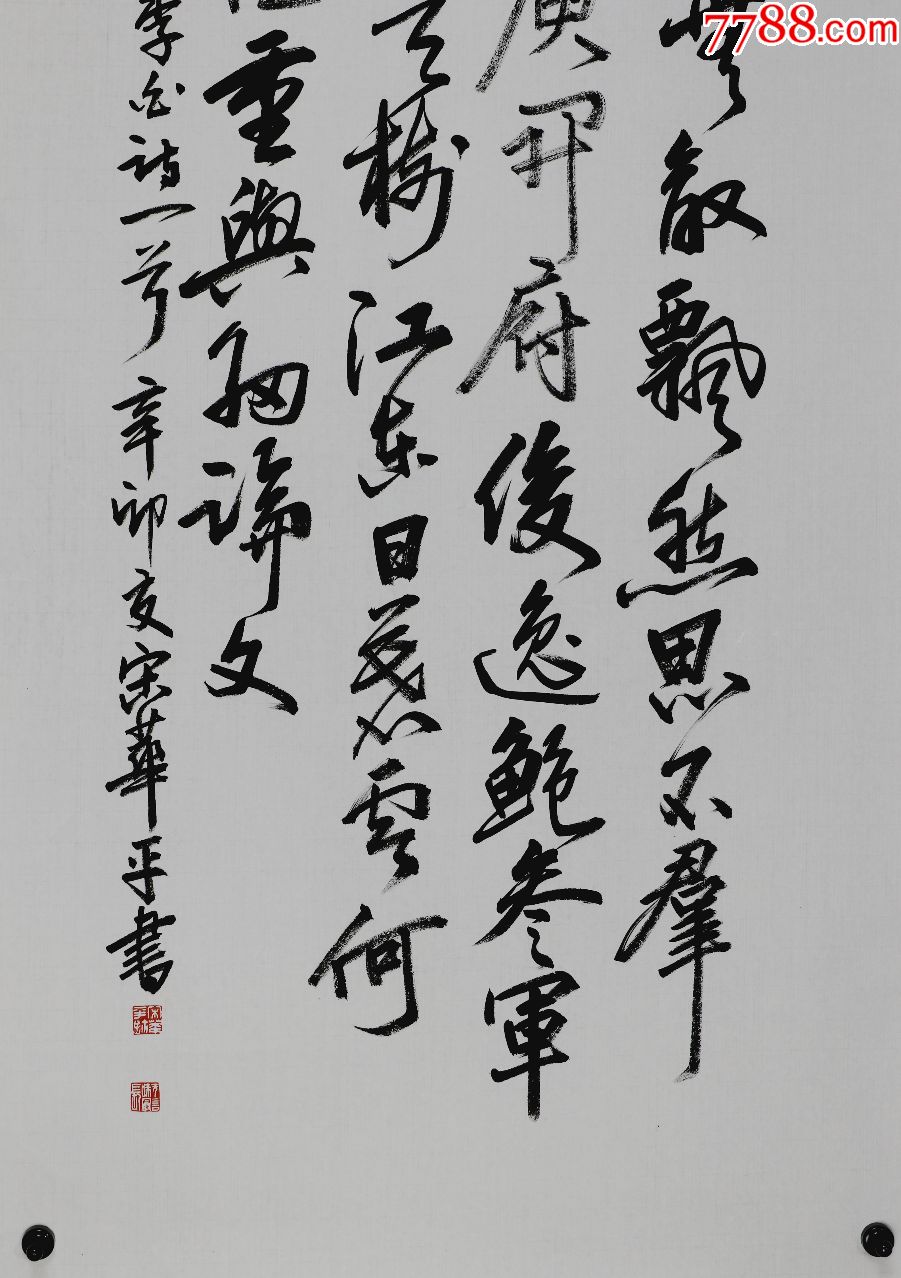 7788.com
無敵飄然思不羣
庾開府俊逸鮑參軍
天樹江東日暮雲何
重與細論文
李白詩一首 辛卯夏宋華平書